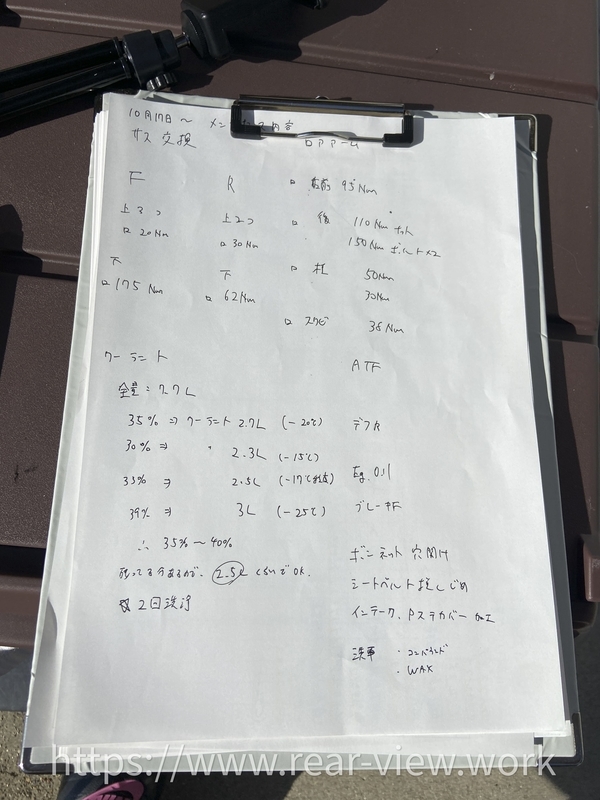 10月17日〜 メンテナンス内容
サス交換
ロアアーム
F
R
□ 前 95Nm
上3つ
上2つ
□ 20Nm
□ 30Nm
□ 後 110Nm ナット
150Nm ボルト×2
下
下
□ 175Nm
□ 62Nm
□ 柱 50Nm
30Nm
□ スタビ 38Nm
クーラント
全量：7.7L
35% ⇒ クーラント 2.7L (-20℃)
30% ⇒ 〃 2.3L (-15℃)
33% ⇒ 2.5L (-17℃
39% ⇒ 3L (-25℃)
∴ 35%〜40%
残ってる分あるので、2.5Lくらいで OK.
2回洗浄
ATF
デフOil
Eg. Oil
ブレーキF
ボンネット 穴開け
シートベルト
インテーク、Pステカバー 加工
洗車 ・コンパウンド
・WAX
https://www.rear-view.work